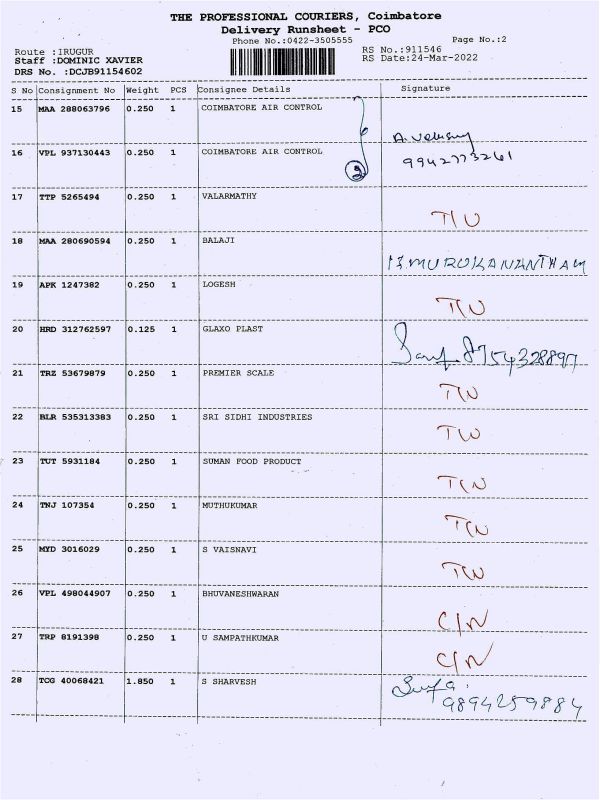 THE PROFESSIONAL COURIERS, Coimbatore
Delivery Runsheet - PCO
Phone No.:0422-3505555 Page No.:2
Route :IRUGUR RS No.:911546
Staff :DOMINIC XAVIER RS Date:24-Mar-2022
DRS No. :DCJB91154602
S No Consignment No Weight PCS Consignee Details Signature
15 MAA 288063796 0.250 1 COIMBATORE AIR CONTROL
16 VPL 937130443 0.250 1 COIMBATORE AIR CONTROL 2 9942773261
17 TTP 5265494 0.250 1 VALARMATHY
18 MAA 280690594 0.250 1 BALAJI
19 APK 1247382 0.250 1 LOGESH
20 HRD 312762597 0.125 1 GLAXO PLAST 8754328897
21 TRZ 53679879 0.250 1 PREMIER SCALE
22 BLR 535313383 0.250 1 SRI SIDHI INDUSTRIES
23 TUT 5931184 0.250 1 SUMAN FOOD PRODUCT
24 TNJ 107354 0.250 1 MUTHUKUMAR
25 MYD 3016029 0.250 1 S VAISNAVI
26 VPL 498044907 0.250 1 BHUVANESHWARAN C/N
27 TRP 8191398 0.250 1 U SAMPATHKUMAR C/N
28 TCG 40068421 1.850 1 S SHARVESH 9894259884